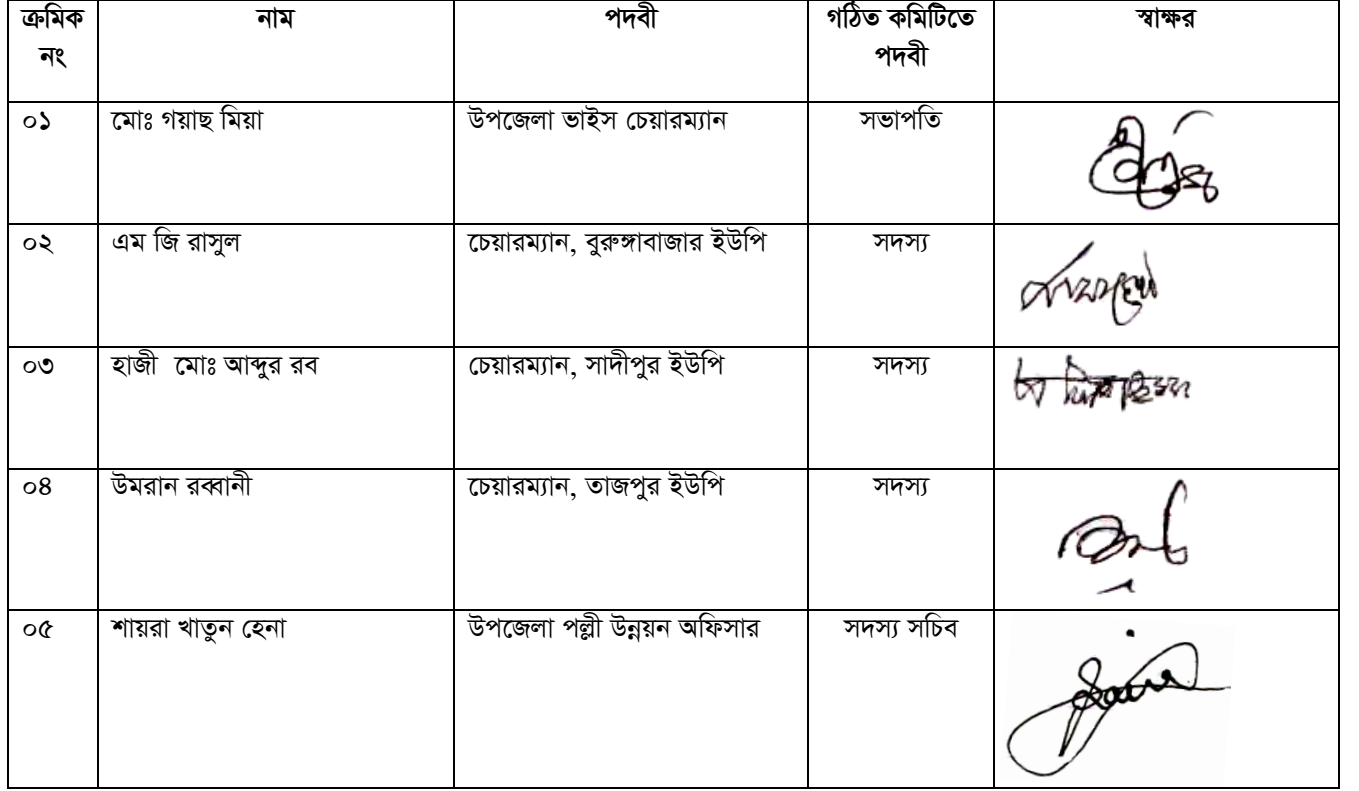 ক্রমিক নাম পদবী গঠিত কমিটিতে স্বাক্ষর
নং পদবী
০১ মোঃ গয়াছ মিয়া উপজেলা ভাইস চেয়ারম্যান সভাপতি
০২ এম জি রাসুল চেয়ারম্যান, বুরুঙ্গাবাজার ইউপি সদস্য
০৩ হাজী মোঃ আব্দুর রব চেয়ারম্যান, সাদীপুর ইউপি সদস্য
০৪ উমরান রব্বানী চেয়ারম্যান, তাজপুর ইউপি সদস্য
০৫ শায়রা খাতুন হেনা উপজেলা পল্লী উন্নয়ন অফিসার সদস্য সচিব